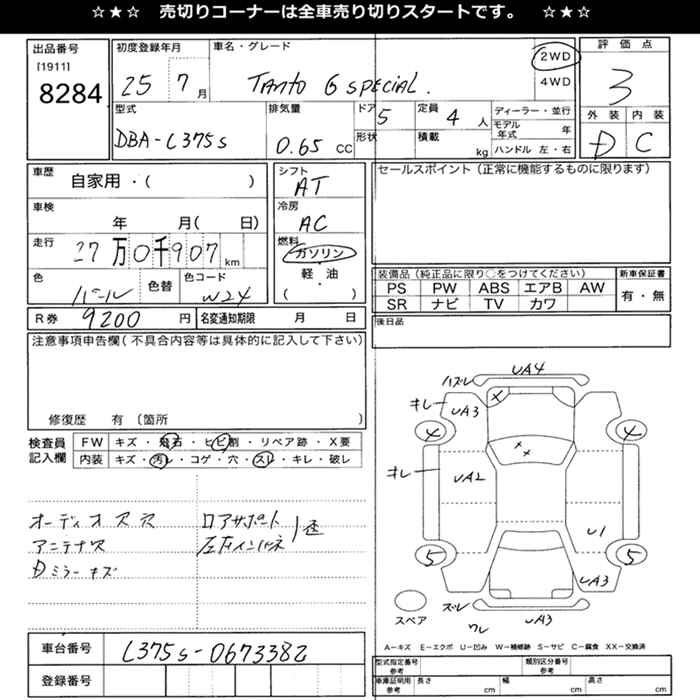 ☆★☆ 売切りコーナーは全車売り切りスタートです。 ☆★☆
出品番号
[1911]
8284
初度登録年月
25 7 月
車名・グレード
TANTO G SPECIAL.
2WD
4WD
評価点
3
型式
DBA-L375S
排気量
0.65 CC
ドア 5
形状
定員 4 人
積載 kg
ディーラー・並行
モデル年式 年
ハンドル 左・右
外装 内装
D C
車歴
自家用・( )
車検
年 月( 日)
走行
27万0千907 km
色
パール
色替
色コード
W24
シフト
AT
冷房
AC
燃料
ガソリン
・
軽・油
( )
セールスポイント(正常に機能するものに限ります)
装備品(純正品に限り○をつけてください)
PS PW ABS エアB AW
SR ナビ TV カワ
新車保証書
有・無
R券 9200 円
名変通知期限 月 日
後日品
注意事項申告欄(不具合内容等は具体的に記入して下さい)
修復歴 有 〔箇所 〕
検査員記入欄
FW キズ・飛石・ヒビ割・リペア跡・X要
内装 キズ・汚レ・コゲ・穴・スレ・キレ・破レ
オーディオススス
アンテナ欠
Dミラーキズ
ロアサポート
左右インパネ
ハズレ UA4
キレ UA3
X
4 4
XX
キレ UA2
U1
5 5
UA3
スペア
ズレ UA3
ワレ
A−キズ E−エクボ U−凹み W−補修跡 S−サビ C−腐食 XX−交換済
車台番号
L375S-0673382
登録番号
型式指定番号 参考
類別区分番号 参考
車庫証明用 参考
長さ cm
幅 cm
高さ cm